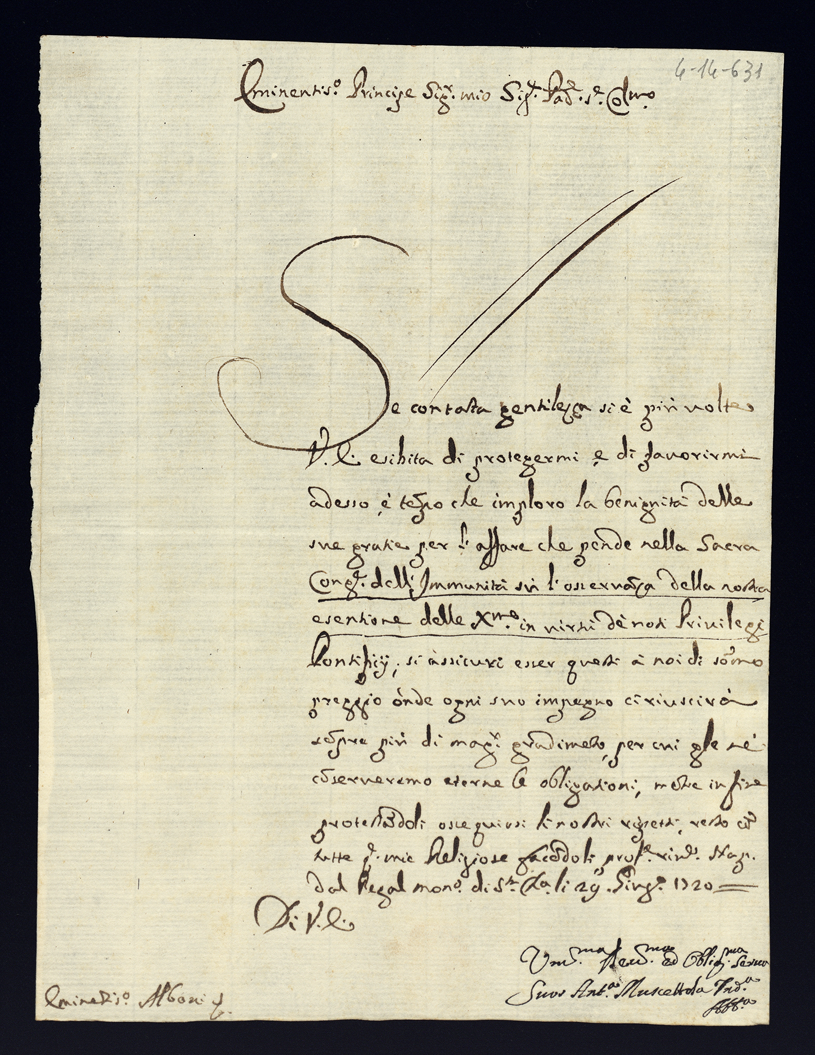 4-14-631
Eminentis.º Principe Sig.r mio Sig.r Pad.e s.e Colmo
Se con tãta gentilezza si è più volte
V. E. esibita di protegermi, e di favorirmi
adesso è tẽpo che imploro la benignità delle
sue gratie per l'affare che pende nella Sacra
Cong.e dell'Immunità sù l'osservãza della nostra
esentione delle Xme in virtù dè noti Privilegi
Pontificij, si assicuri esser questi à noi di sõmo
preggio onde ogni suo impegno ci riuscirà
sẽpre più di mag.r gradimẽto, per cui gle ne
cõserveremo eterne le obligationi, mẽtre in fine
protestãdoli ossequiosi li nostri rispetti, resto cõ
tutte q.e mie Religiose facẽdoli prof.e riv.e
Dal Regal mon.º di S.ta Ch.a li 29 Giug.º 1720
Di V. E.
Um.ma Dev.ma ed Oblig.ma Serva
Suor Ant.a Muscettola Ind.a
Abb.a
Eminẽtis.º Albani